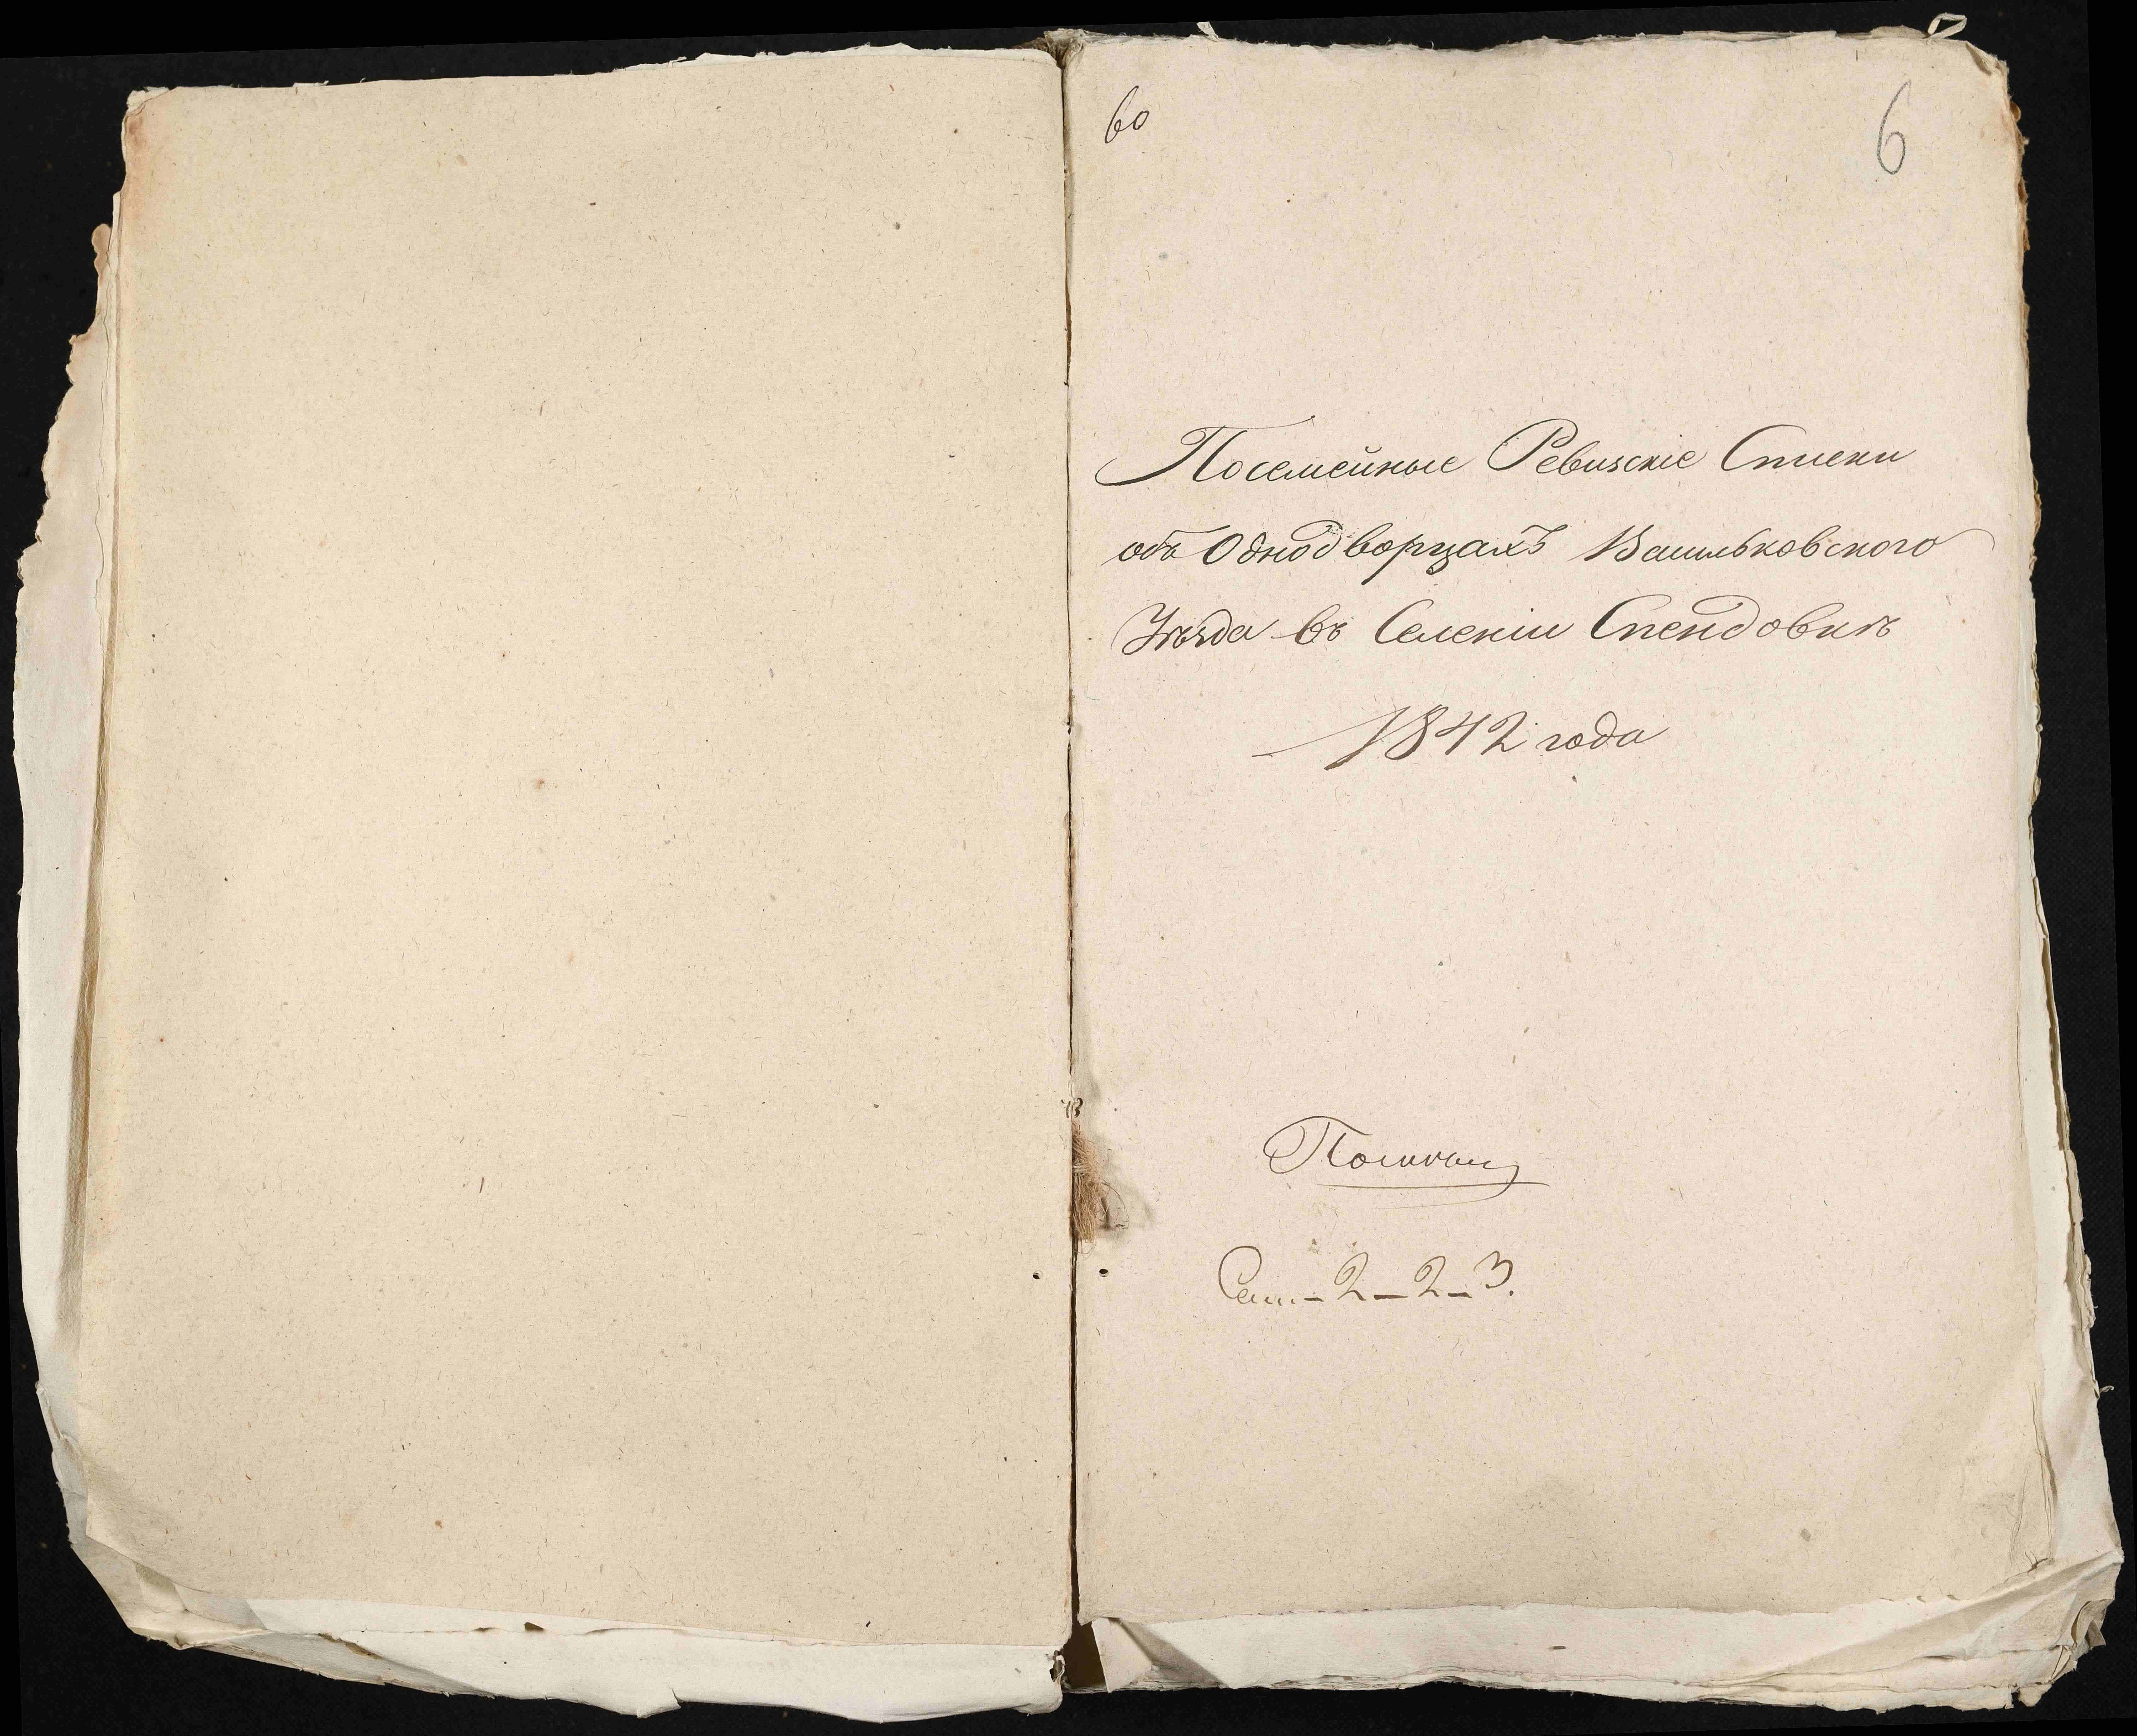 60
6
Посемейные Ревизскіе Списки
объ Однодворцахъ Васильковского
Уѣзда въ Селеніи Спендовкѣ
1842 года
Сем. – 2 – 2 – 3.